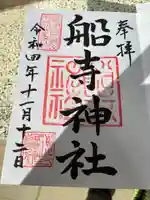 奉拝
船寺神社
令和四年十一月十二日